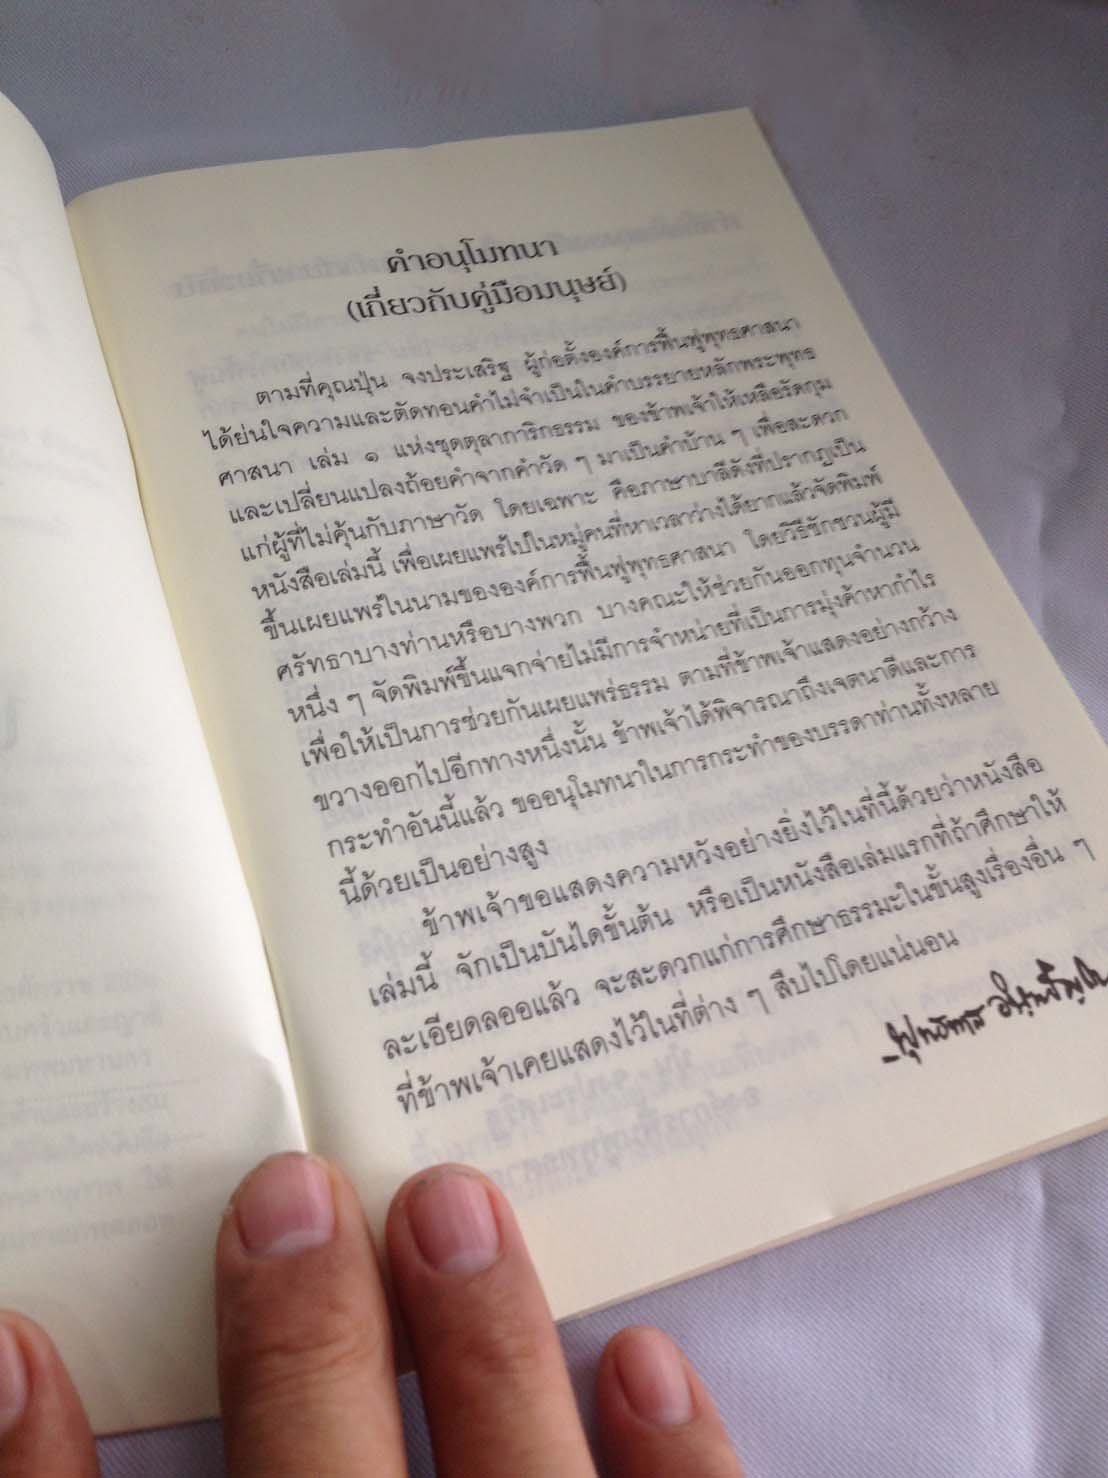 คำอนุโมทนา
(เกี่ยวกับคู่มือมนุษย์)
ตามที่คุณปุ่น จงประเสริฐ ผู้ก่อตั้งองค์การฟื้นฟูพุทธศาสนา
ได้ย่นใจความและตัดทอนคำไม่จำเป็นในคำบรรยายหลักพระพุทธ
ศาสนา เล่ม ๑ แห่งชุดตุลาการิกธรรม ของข้าพเจ้าให้เหลือรัดกุม
และเปลี่ยนแปลงถ้อยคำจากคำวัด ๆ มาเป็นคำบ้าน ๆ เพื่อสะดวก
แก่ผู้ที่ไม่คุ้นกับภาษาวัด โดยเฉพาะ คือภาษาบาลีดังที่ปรากฏเป็น
หนังสือเล่มนี้ เพื่อเผยแพร่ไปในหมู่คนที่หาเวลาว่างได้ยากแล้วจัดพิมพ์
ขึ้นเผยแพร่ในนามขององค์การฟื้นฟูพุทธศาสนา โดยวิธีชักชวนผู้มี
ศรัทธาบางท่านหรือบางพวก บางคณะให้ช่วยกันออกทุนจำนวน
หนึ่ง ๆ จัดพิมพ์ขึ้นแจกจ่ายไม่มีการจำหน่ายที่เป็นการมุ่งค้าหากำไร
เพื่อให้เป็นการช่วยกันเผยแพร่ธรรม ตามที่ข้าพเจ้าแสดงอย่างกว้าง
ขวางออกไปอีกทางหนึ่งนั้น ข้าพเจ้าได้พิจารณาถึงเจตนาดีและการ
กระทำอันนี้แล้ว ขออนุโมทนาในการกระทำของบรรดาท่านทั้งหลาย
นี้ด้วยเป็นอย่างสูง
ข้าพเจ้าขอแสดงความหวังอย่างยิ่งไว้ในที่นี้ด้วยว่าหนังสือ
เล่มนี้ จักเป็นบันไดขั้นต้น หรือเป็นหนังสือเล่มแรกที่ถ้าศึกษาให้
ละเอียดลออแล้ว จะสะดวกแก่การศึกษาธรรมะในขั้นสูงเรื่องอื่น ๆ
ที่ข้าพเจ้าเคยแสดงไว้ในที่ต่าง ๆ สืบไปโดยแน่นอน
พุทธทาส อินทปัญโญ